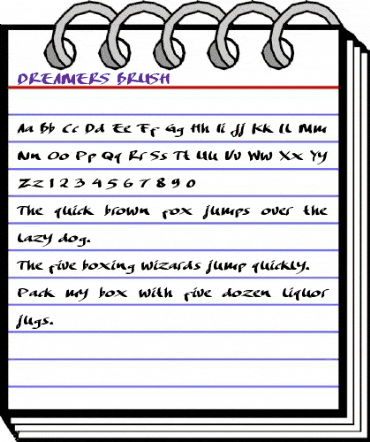 DREAMERS BRUSH
Aa Bb Cc Dd Ee Ff Gg Hh Ii Jj Kk Ll Mm
Nn Oo Pp Qq Rr Ss Tt Uu Vv Ww Xx Yy
Zz 1 2 3 4 5 6 7 8 9 0
The quick brown fox jumps over the
lazy dog.
The five boxing wizards jump quickly.
Pack my box with five dozen liquor
jugs.